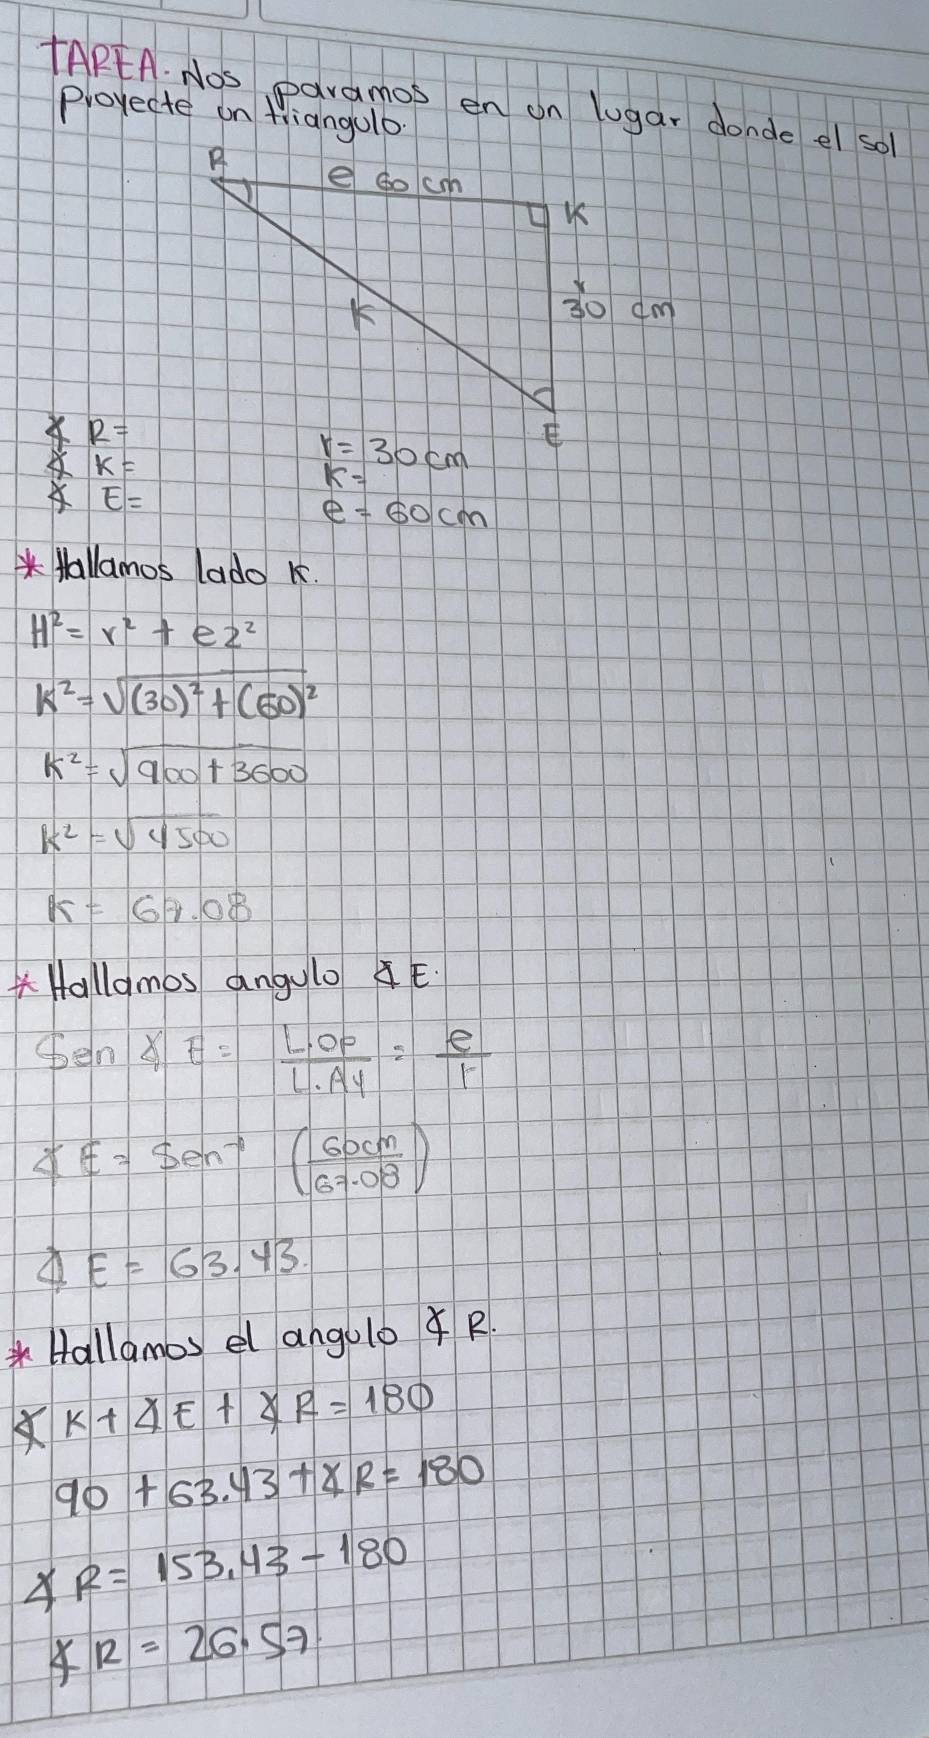 TAREA. Nos paramos en un lugar donde el sol
Proyecte un triangulo.
R
e 60 cm
K
r
30 cm
K
E
∡ R=
∡ K=
∡ E=
r= 30 cm
K=
e= 60 cm
* Hallamos lado K.
H² = r² + e2²
K² = √(30)² + (60)²
K² = √900 + 3600
K² = √4500
K = 67.08
* Hallamos angulo ∡ E.
Sen ∡ E = L.OP / L.Ay = e / r
∡ E = Sen⁻¹ (60cm / 67.08)
∡ E = 63.43.
* Hallamos el angulo ∡ R.
∡ K + ∡ E + ∡ R = 180
90 + 63.43 + ∡ R = 180
∡ R = 153.43 - 180
∡ R = 26.57.